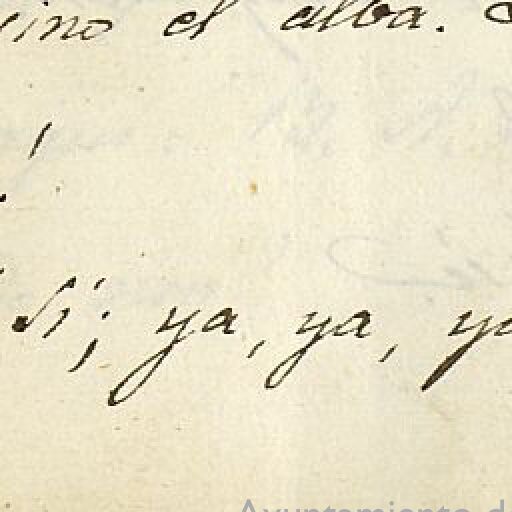 el alba.
Sí; ya, ya, ya
Ayuntamiento d